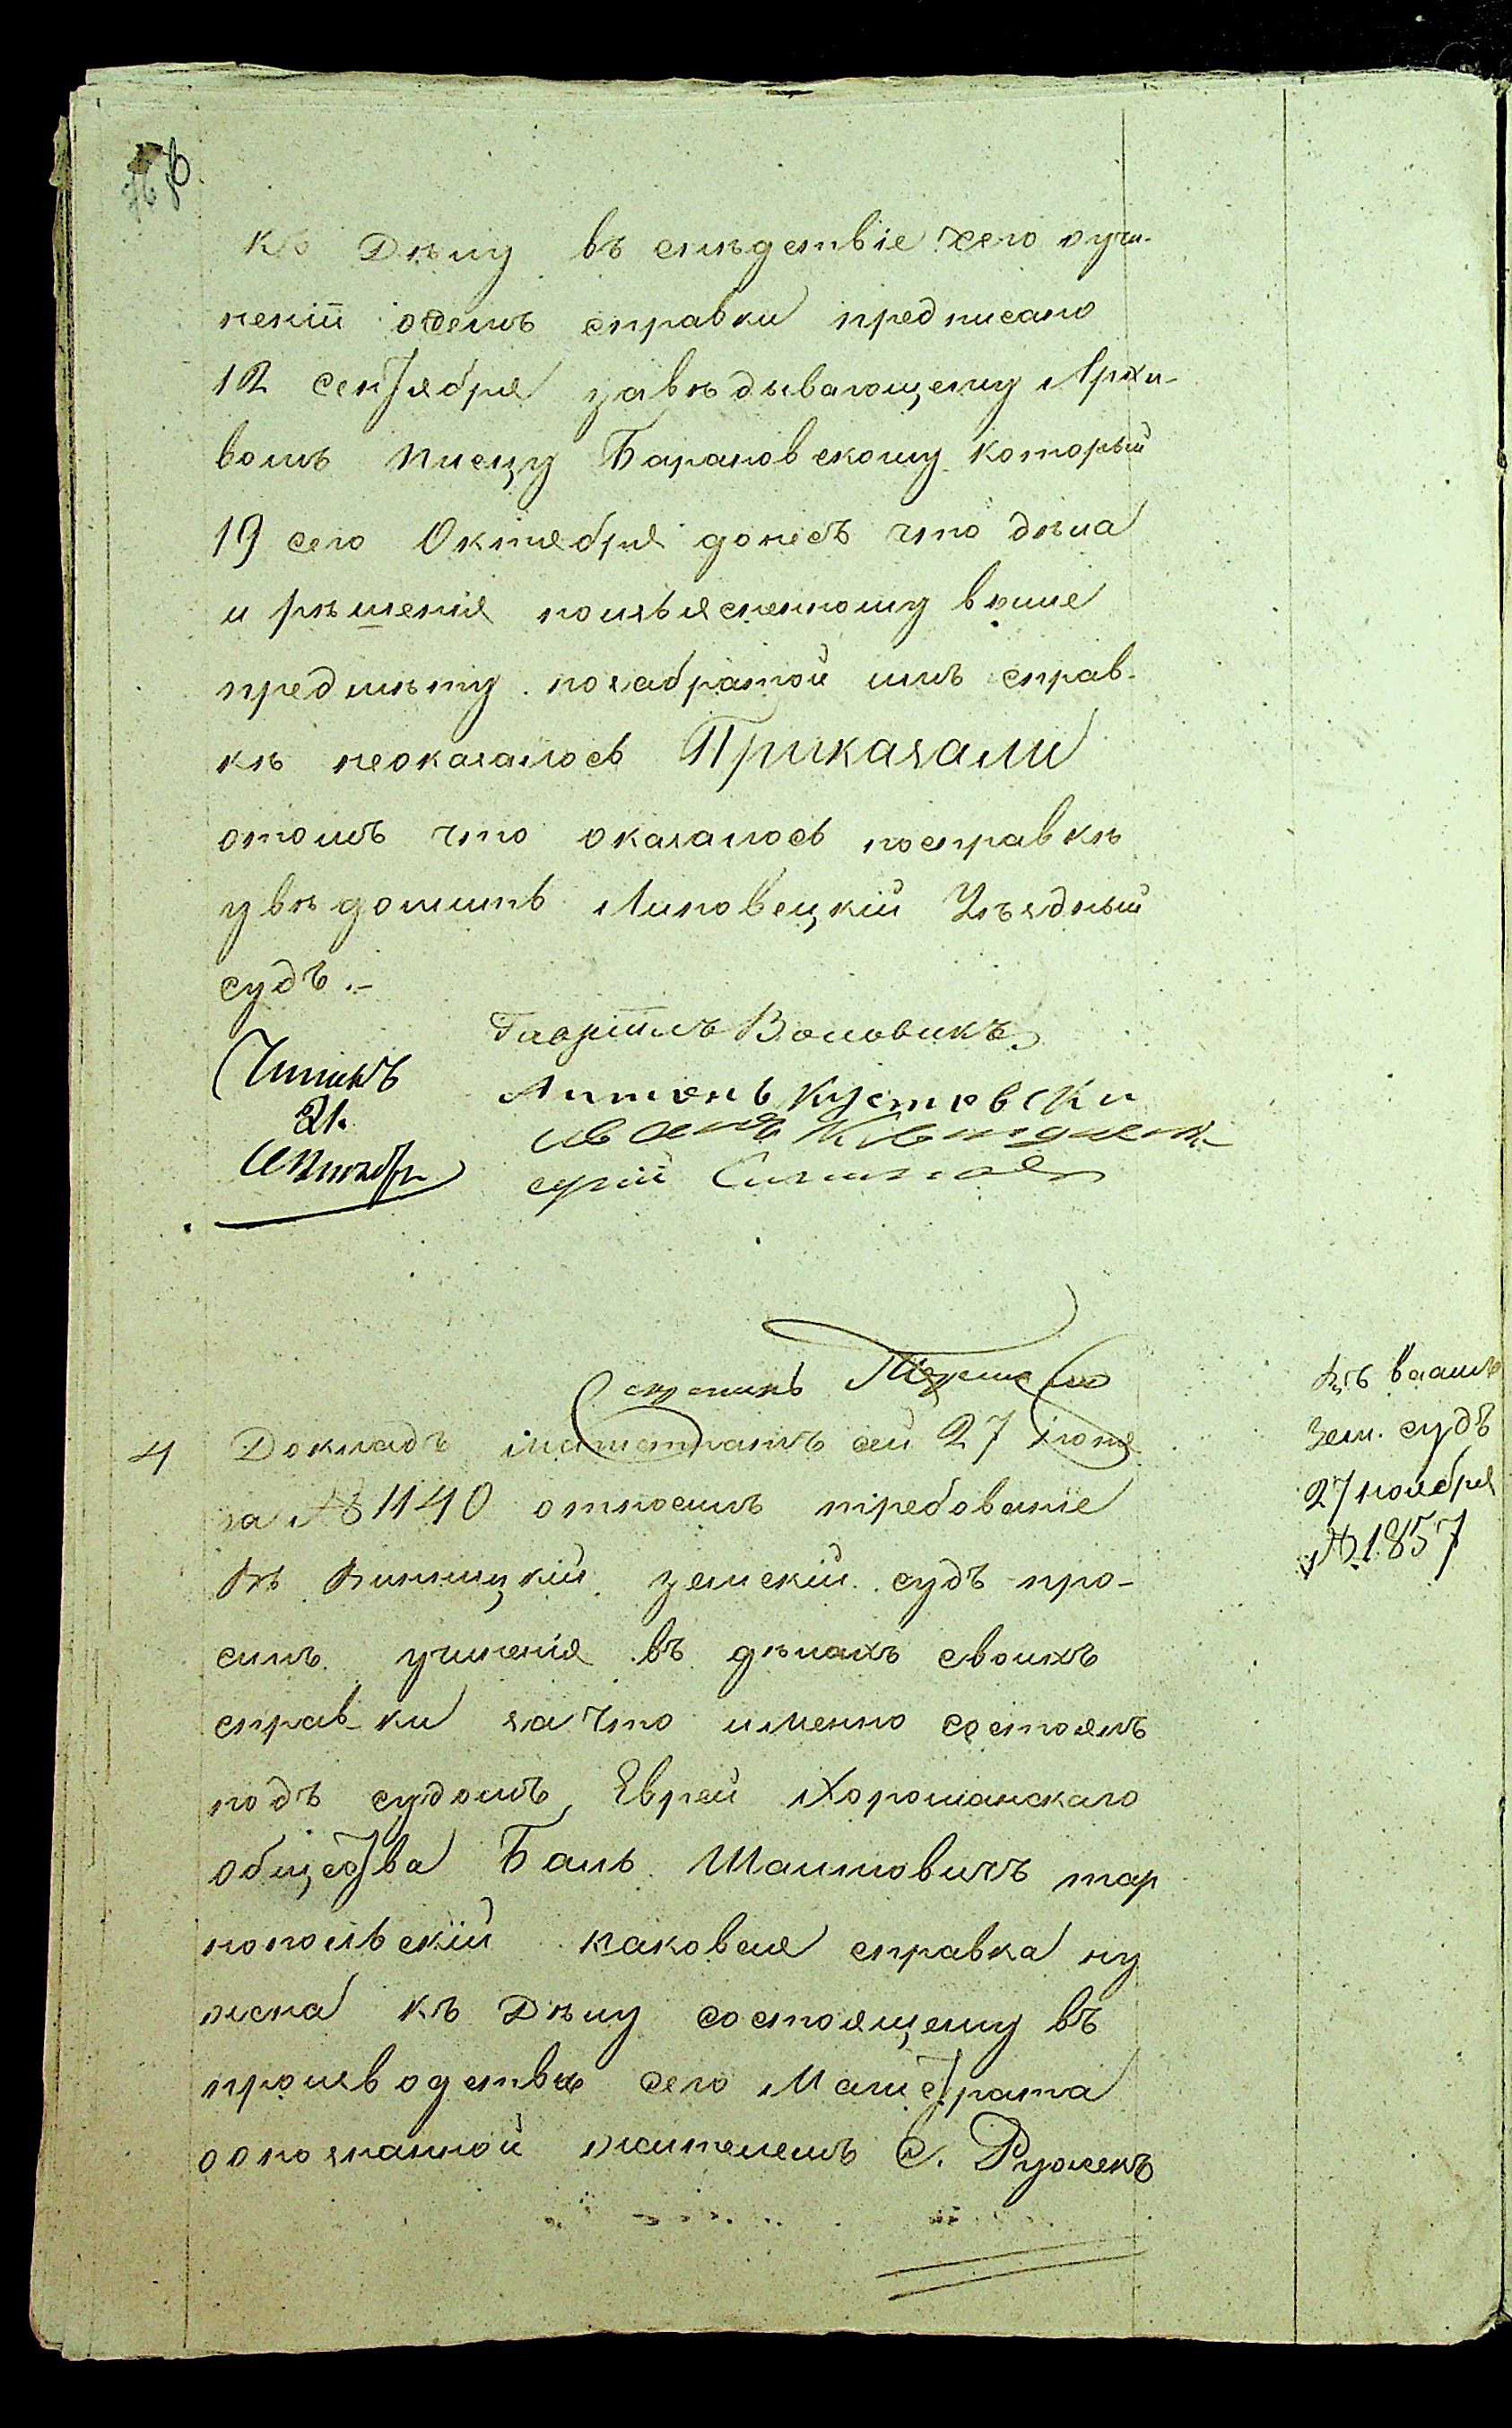 къ Дѣлу въ слѣдствіе чего о учи-
неніи одемъ справки предписано
12 сентября завѣдывающему Архи-
вомъ писцу Барановскому который
19 сего Октября донесъ что дѣла
и рѣшенія поизъясненному выше
предмѣту позабранной имъ справ-
кѣ неоказалось Приказали
отомъ что оказалось посправкѣ
увѣдомить Липовецкій Уѣздный
судъ.-
Гавріилъ Воловикъ
Читалъ
Антонъ Кустовски
21.
Октября
Иванъ
Секретарь
4 Докладъ магистратъ сей 27 іюня
за № 1140 отпосылъ требованіе
въ Винницкій земскій судъ про-
силъ учиненія въ дѣлахъ своихъ
справки за что именно состоялъ
подъ судомъ Еврей Хорошанскаго
общества Баль Шаимовичъ тар
нопольскій каковая справка ну
жна къ Дѣлу состоящему въ
производствѣ сего Магистрата
оопознанной жителемъ С. Ружекъ
Въ
зем. судъ
27 ноября
№ 1857